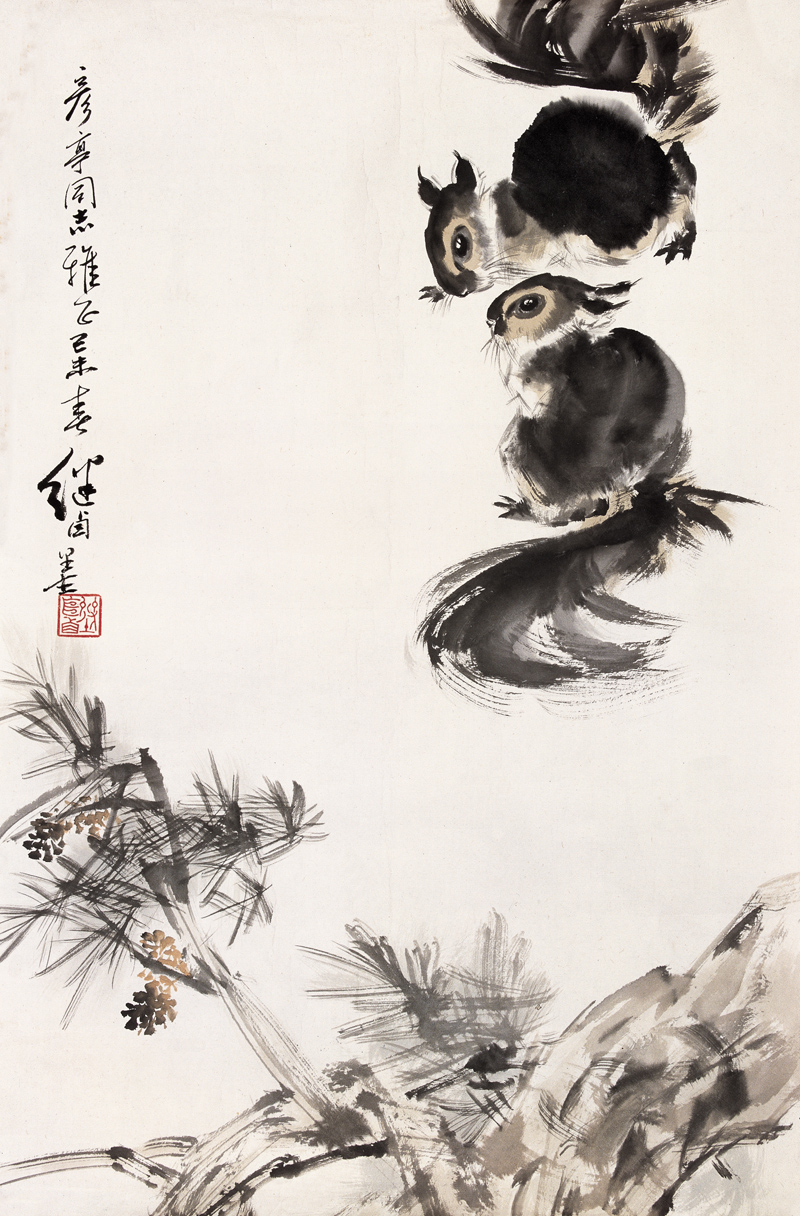 彦亭同志雅正己未春继卣墨